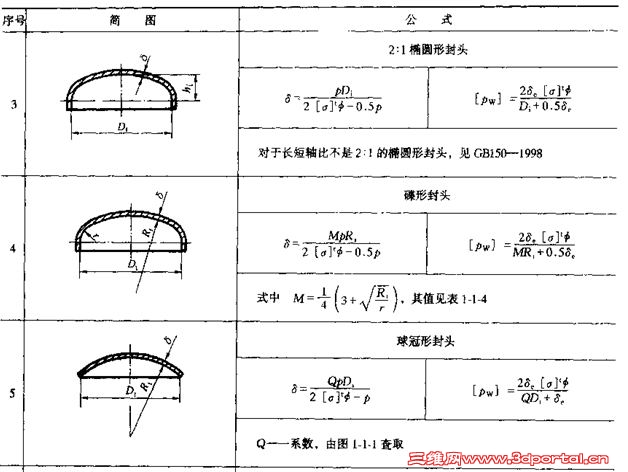 序号 简 图 公 式
3
δ
h_i
D_i
2:1椭圆形封头
δ = pD_i / (2 [σ]^t φ − 0.5p)
[p_w] = 2δ_e [σ]^t φ / (D_i + 0.5δ_e)
对于长短轴比不是2:1的椭圆形封头，见GB150—1998
4
δ
R_i
r
D_i
碟形封头
δ = MpR_i / (2 [σ]^t φ − 0.5p)
[p_w] = 2δ_e [σ]^t φ / (MR_i + 0.5δ_e)
式中 M = 1/4 (3 + √(R_i / r))，其值见表1-1-4
5
δ
R_i
D_i
球冠形封头
δ = QpD_i / (2 [σ]^t φ − p)
[p_w] = 2δ_e [σ]^t φ / (QD_i + δ_e)
Q——系数，由图1-1-1查取
三维网www.3dportal.cn